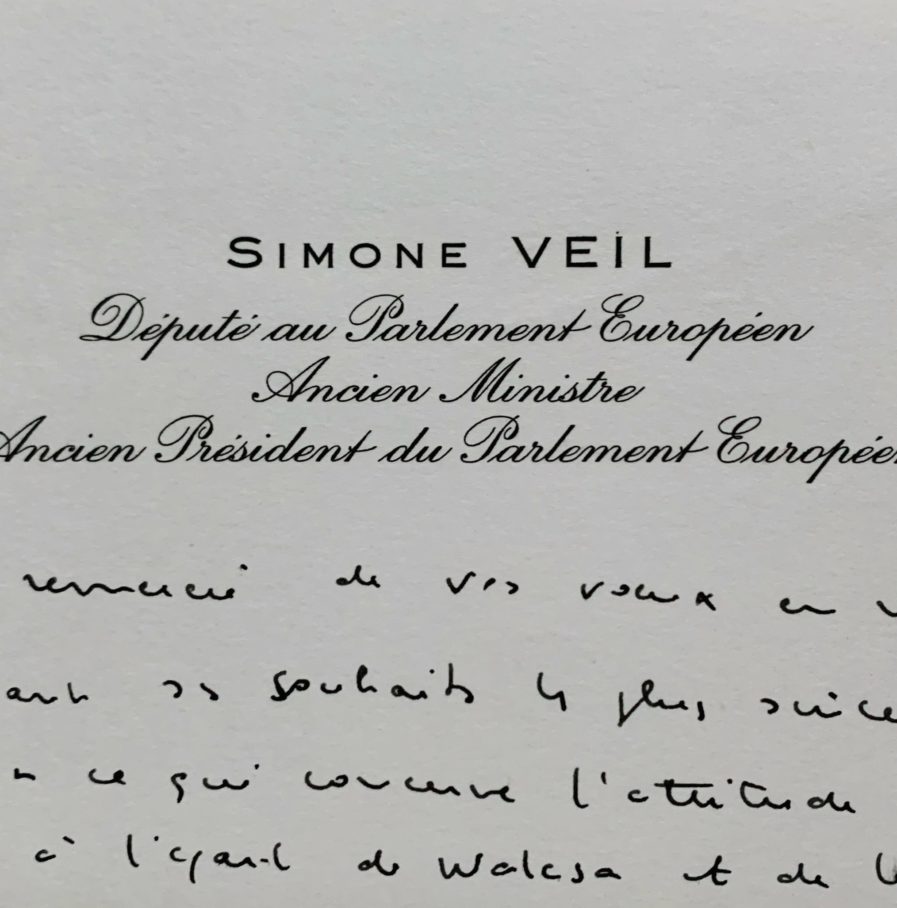 SIMONE VEIL
Député au Parlement Européen
Ancien Ministre
Ancien Président du Parlement Européen
remercie de vos vœux en
ses souhaits les plus
ce qui concerne l'attitude
à l'égard de Walesa et de